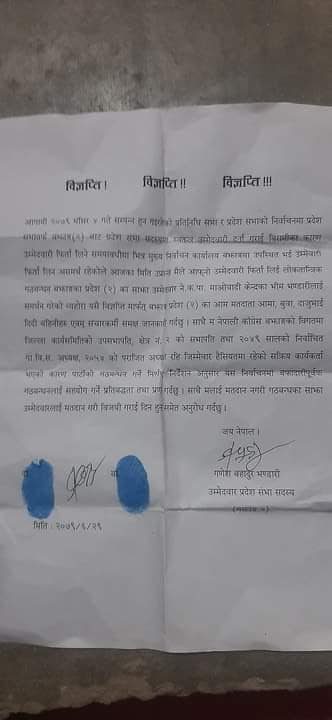 विज्ञप्ति ! विज्ञप्ति !! विज्ञप्ति !!!
आगामी २०७९ मंसिर ४ गते सम्पन्न हुन गइरहेको प्रतिनिधि सभा र प्रदेश सभाको निर्वाचनमा प्रदेश
सभातर्फ बझाङ(२) बाट प्रदेश सभा सदस्यमा स्वतन्त्र उम्मेदवारी दर्ता गराई बिरामीका कारण
उम्मेदवारी फिर्ता लिने समयावधीमा भित्र मुख्य निर्वाचन कार्यालय बझाङमा उपस्थित भई उम्मेदवारी
फिर्ता लिन असमर्थ रहेकोले आजका मिति उप्रान्त मैले आफ्नो उम्मेदवारी फिर्ता लिई लोकतान्त्रिक
गठबन्धन बझाङ प्रदेश (२) का साझा उम्मेदवार ने.क.पा. माओवादी केन्द्रका भीम भण्डारीलाई
समर्थन गरेको व्यहोरा यसै विज्ञप्ति मार्फत् बझाङ प्रदेश (२) का आम मतदाता आमा, बुवा, दाजुभाई
दिदी बहिनीहरु एवम् संचारकर्मी समक्ष जानकारी गर्दछु । साथै म नेपाली काँग्रेस बझाङको विगतमा
जिल्ला कार्यसमितिको उपसभापति, क्षेत्र नं. २ को सभापति तथा २०४९ सालको निर्वाचित
गा.वि.स. अध्यक्ष, २०५४ को पराजित अध्यक्ष रहि जिम्मेवार हैसियतमा रहेको सक्रिय कार्यकर्ता
भएको कारण पार्टीको गठबन्धन गर्ने निर्णय निर्देशन अनुसार यस निर्वाचनमा वफादारीपूर्वक
गठबन्धनलाई सहयोग गर्ने प्रतिबद्धता तथा प्रण गर्दछु । साथै मलाई मतदान नगरी गठबन्धनका साझा
उम्मेदवारलाई मतदान गरी विजयी गराई दिन हुन समेत अनुरोध गर्दछु ।
जय नेपाल ।
गणेश बहादुर भण्डारी
उम्मेदवार प्रदेश सभा सदस्य
मिति : २०७९/६/२९